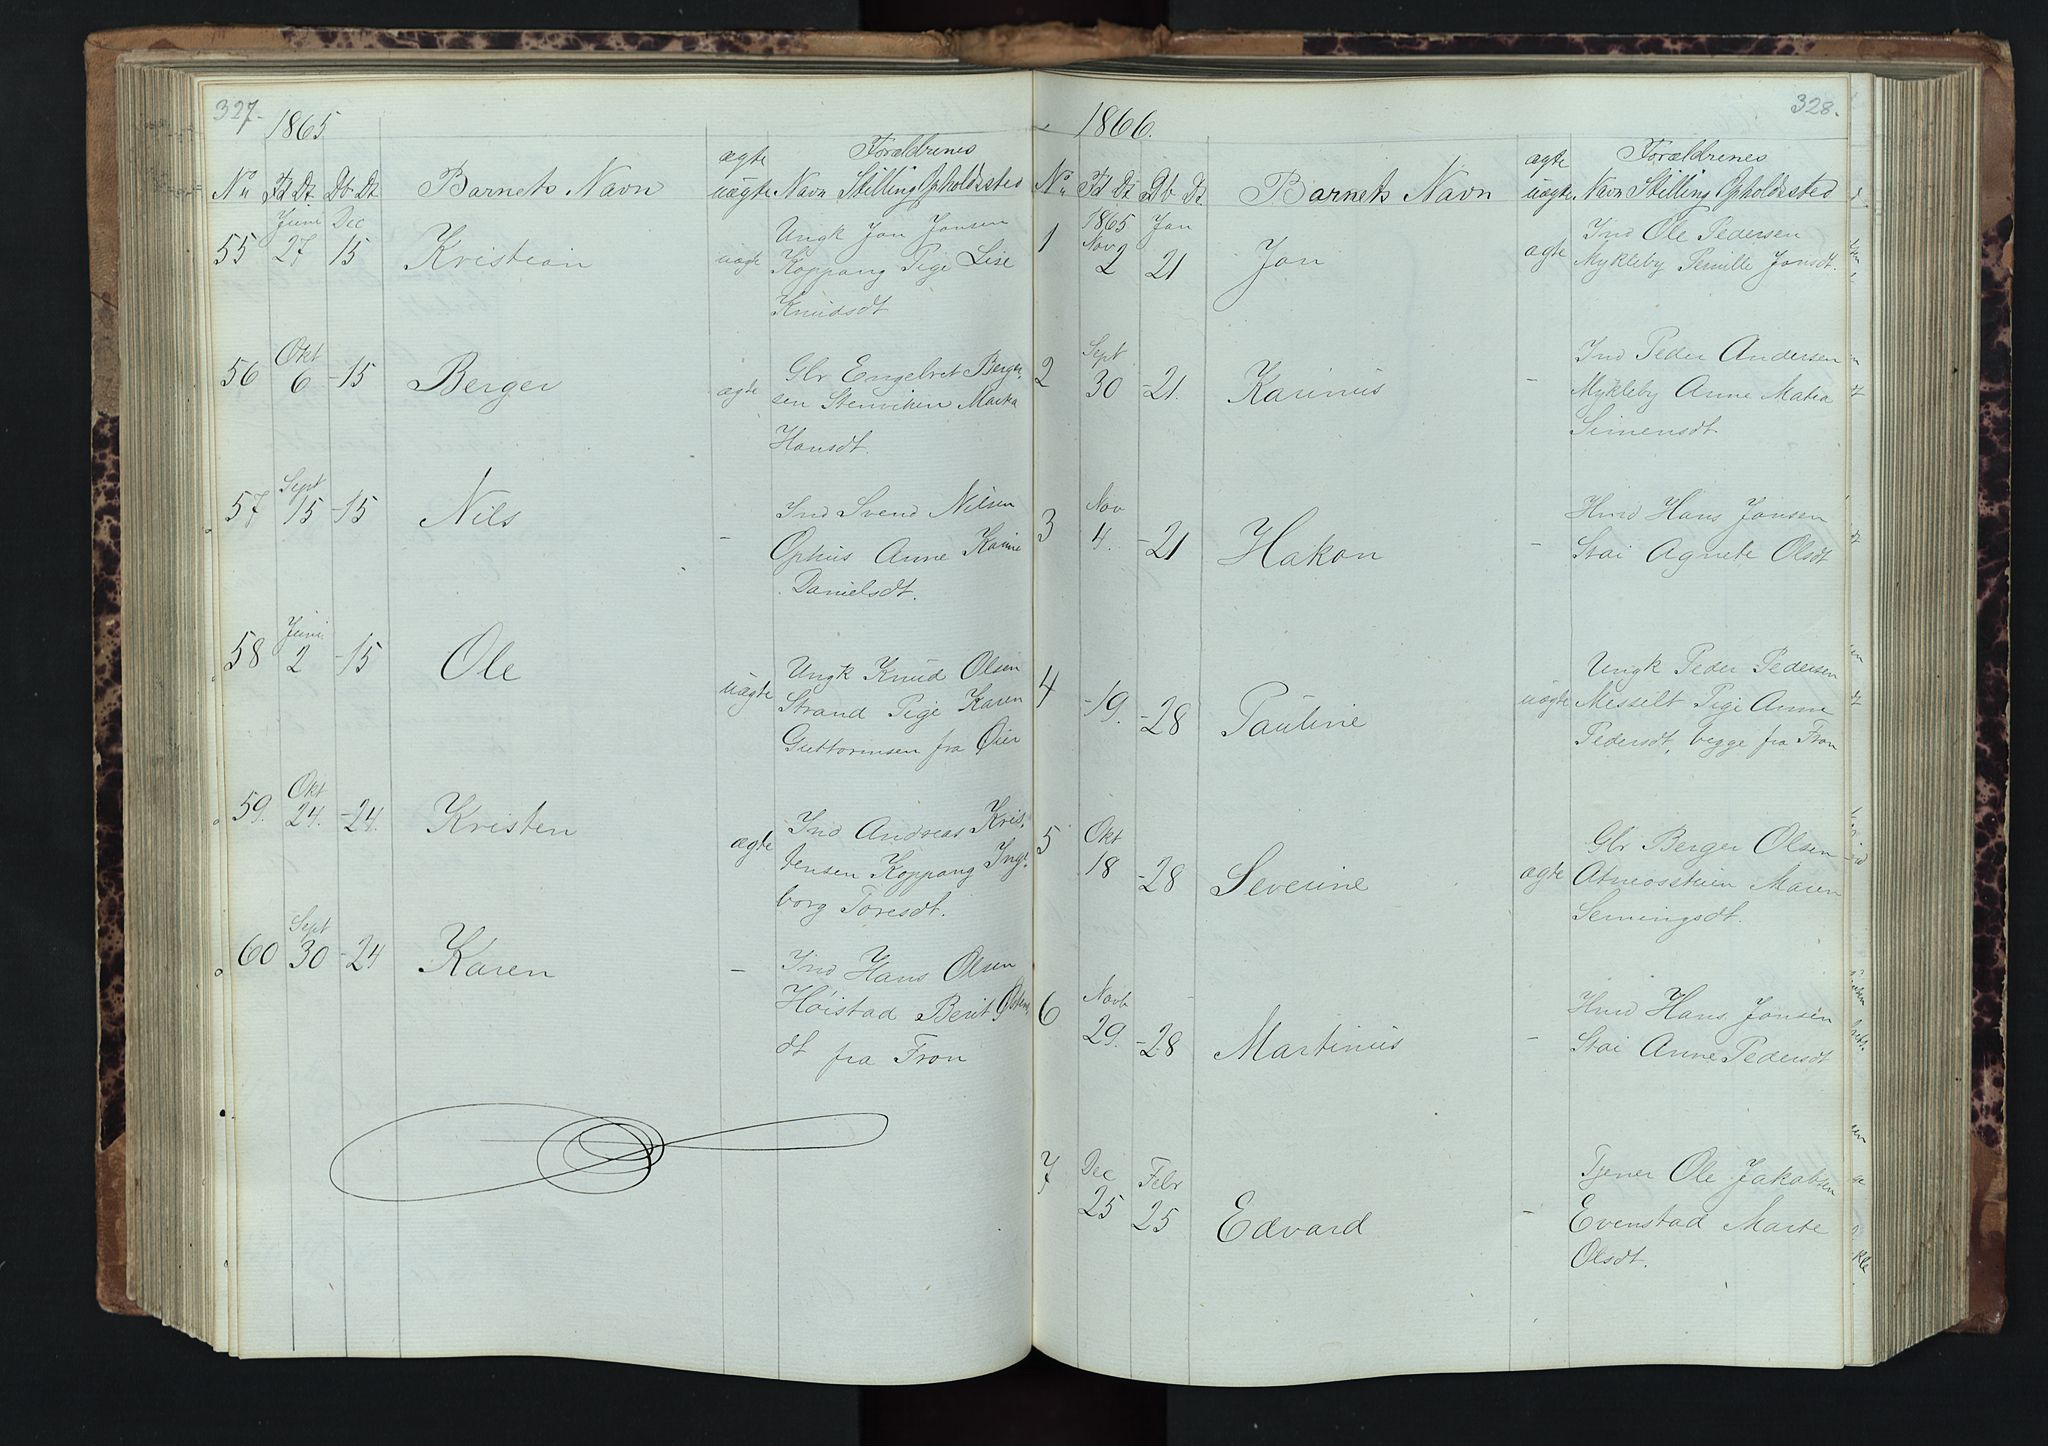 327.
1865
ægte Forældrenes
No Fd Dt. Db Dt Barnets Navn uægte Navn Stilling Opholdssted
Juni Dec
55 27 15 Kristian uægte Ungk Jon Jonsen
Koppang Pige Lise
Knudsdt
Okt
56 6 -15 Berger ægte Gbr Engelbret Berger-
sen Stenviken Marka
Hansdt.
Sept
57 15 -15 Nils - Ind Svend Nilsen
Ophus Anne Karine
Danielsdt.
Juni
58 2 -15 Ole uægte Ungk Knud Olsen
Strand Pige Karen
Guttormsen fra Øier
Okt
59. 24. -24. Kristen ægte Ind Andreas Kris-
tensen Koppang Inge-
borg Toresdt.
Sept
60 30 -24 Karen - Ind Hans Olsen
Høistad Berit
dt fra Fron
328.
1866.
ægte Forældrenes
No Fd Dt Db Dt. Barnets Navn uægte Navn Stilling Opholdssted
1865 Jan
1 Nov 2 21 Jon ægte Ind Ole Pedersen
Mykleby Pernille Jonsdt.
Sept
2 30 -21. Karinus - Ind Peder Andersen
Mykleby Anne Matea
Simensdt.
Nov
3 4. -21 Hakon - Hmd Hans Jonsen
Stai Agnete Olsdt
4 -19. -28 Pauline uægte Ungk Peder Pedersen
Messelt Pige Anne
Pedersdt, begge fra Fron
Okt
5 18 -28 Severine ægte Gbr Berger Olsen
Atneosstuen Maren
Semingsdt.
Novb
6 29. -28 Martinus - Hmd Hans Jonsen
Stai Anne Pedersdt
Dec Febr
7 25 25 Edvard - Tjener Ole Jakobsen
Evenstad Marte
Olsdt.